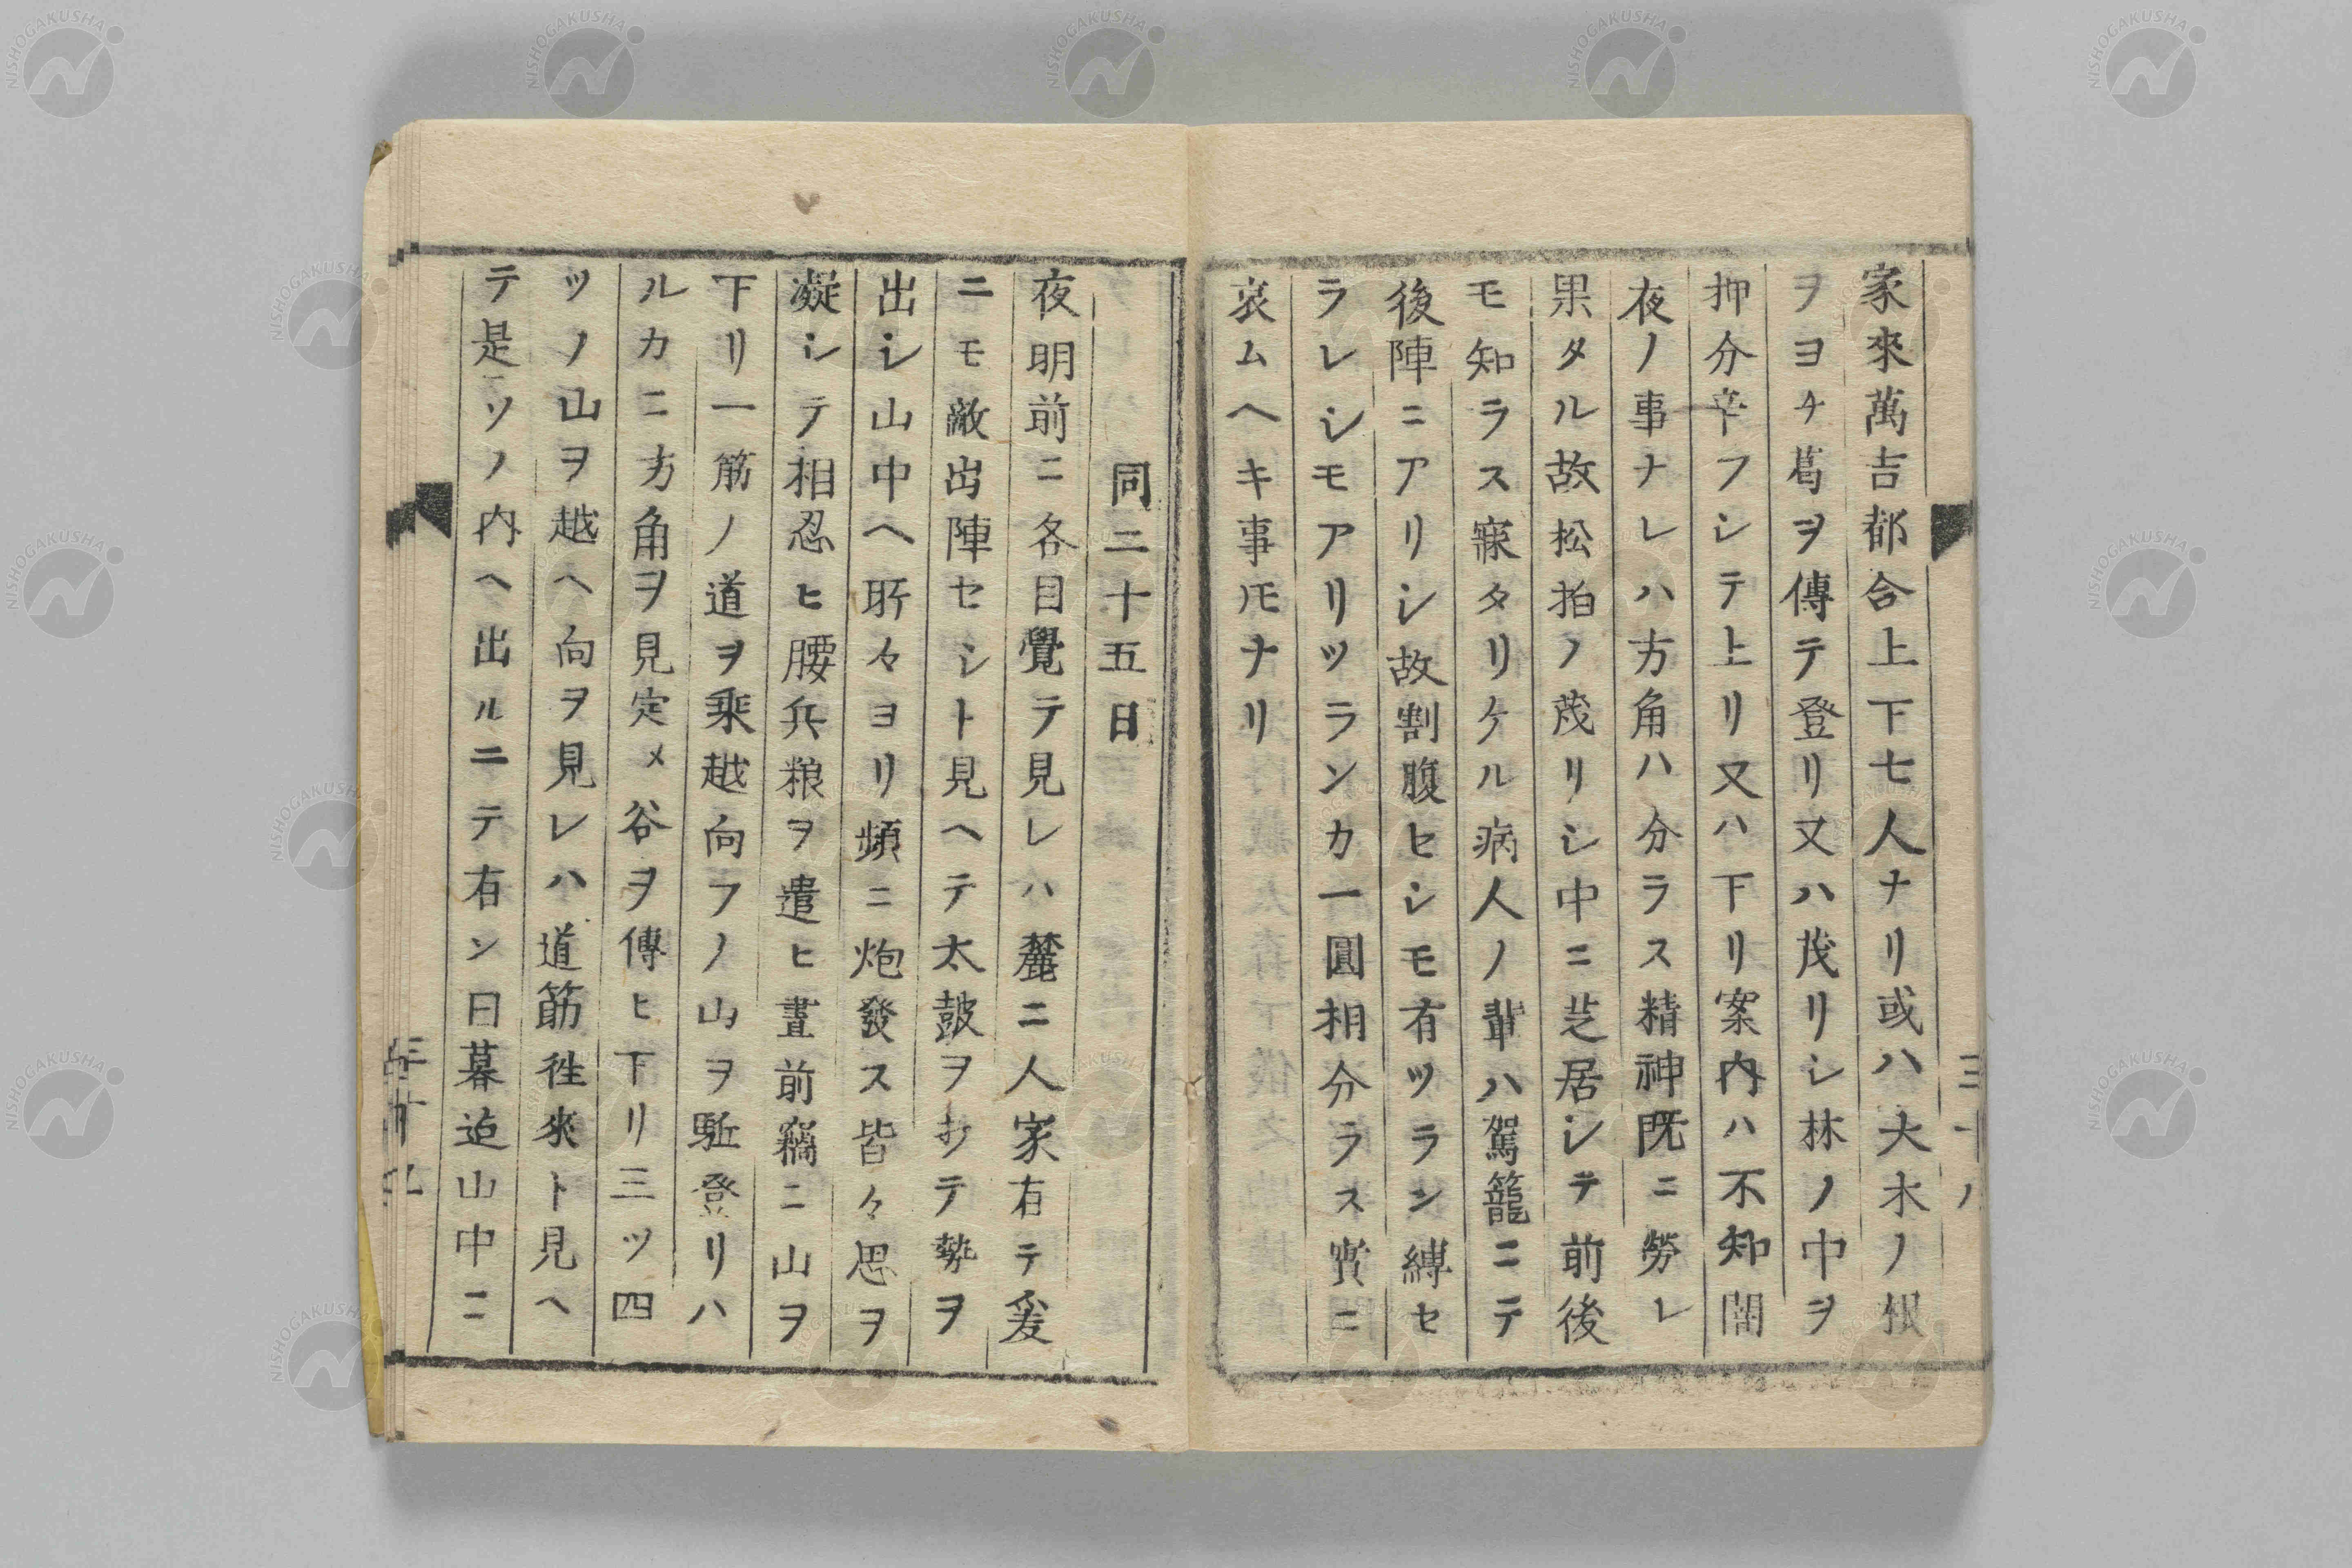 家來萬吉都合上下七人ナリ或ハ大木ノ根
ヲヨチ葛ヲ傳テ登リ又ハ茂リシ林ノ中ヲ
押分辛フシテ上リ又ハ下リ案内ハ不知闇
夜ノ事ナレハ方角ハ分ラス精神既ニ勞レ
果タル故松拍ノ茂リシ中ニ芝居シテ前後
モ知ラス寐タリケル病人ノ輩ハ駕籠ニテ
後陣ニアリシ故割腹セシモ有ツラン縛セ
ラレシモアリツランカ一圓相分ラス實ニ
哀ムヘキ事𪜈ナリ
同二十五日
夜明前ニ各目覺テ見レハ麓ニ人家有テ爰
ニモ敵出陣セシト見ヘテ太皷ヲ打テ勢ヲ
出シ山中ヘ所々ヨリ頻ニ炮發ス皆々思ヲ
凝シテ相忍ヒ腰兵粮ヲ遣ヒ晝前竊ニ山ヲ
下リ一筋ノ道ヲ乘越向フノ山ヲ駈登リハ
ルカニ方角ヲ見定メ谷ヲ傳ヒ下リ三ツ四
ツノ山ヲ越ヘ向ヲ見レハ道筋徃來ト見ヘ
テ是ソノ内ヘ出ルニテ有ン日暮迠山中ニ
NISHOGAKUSHA